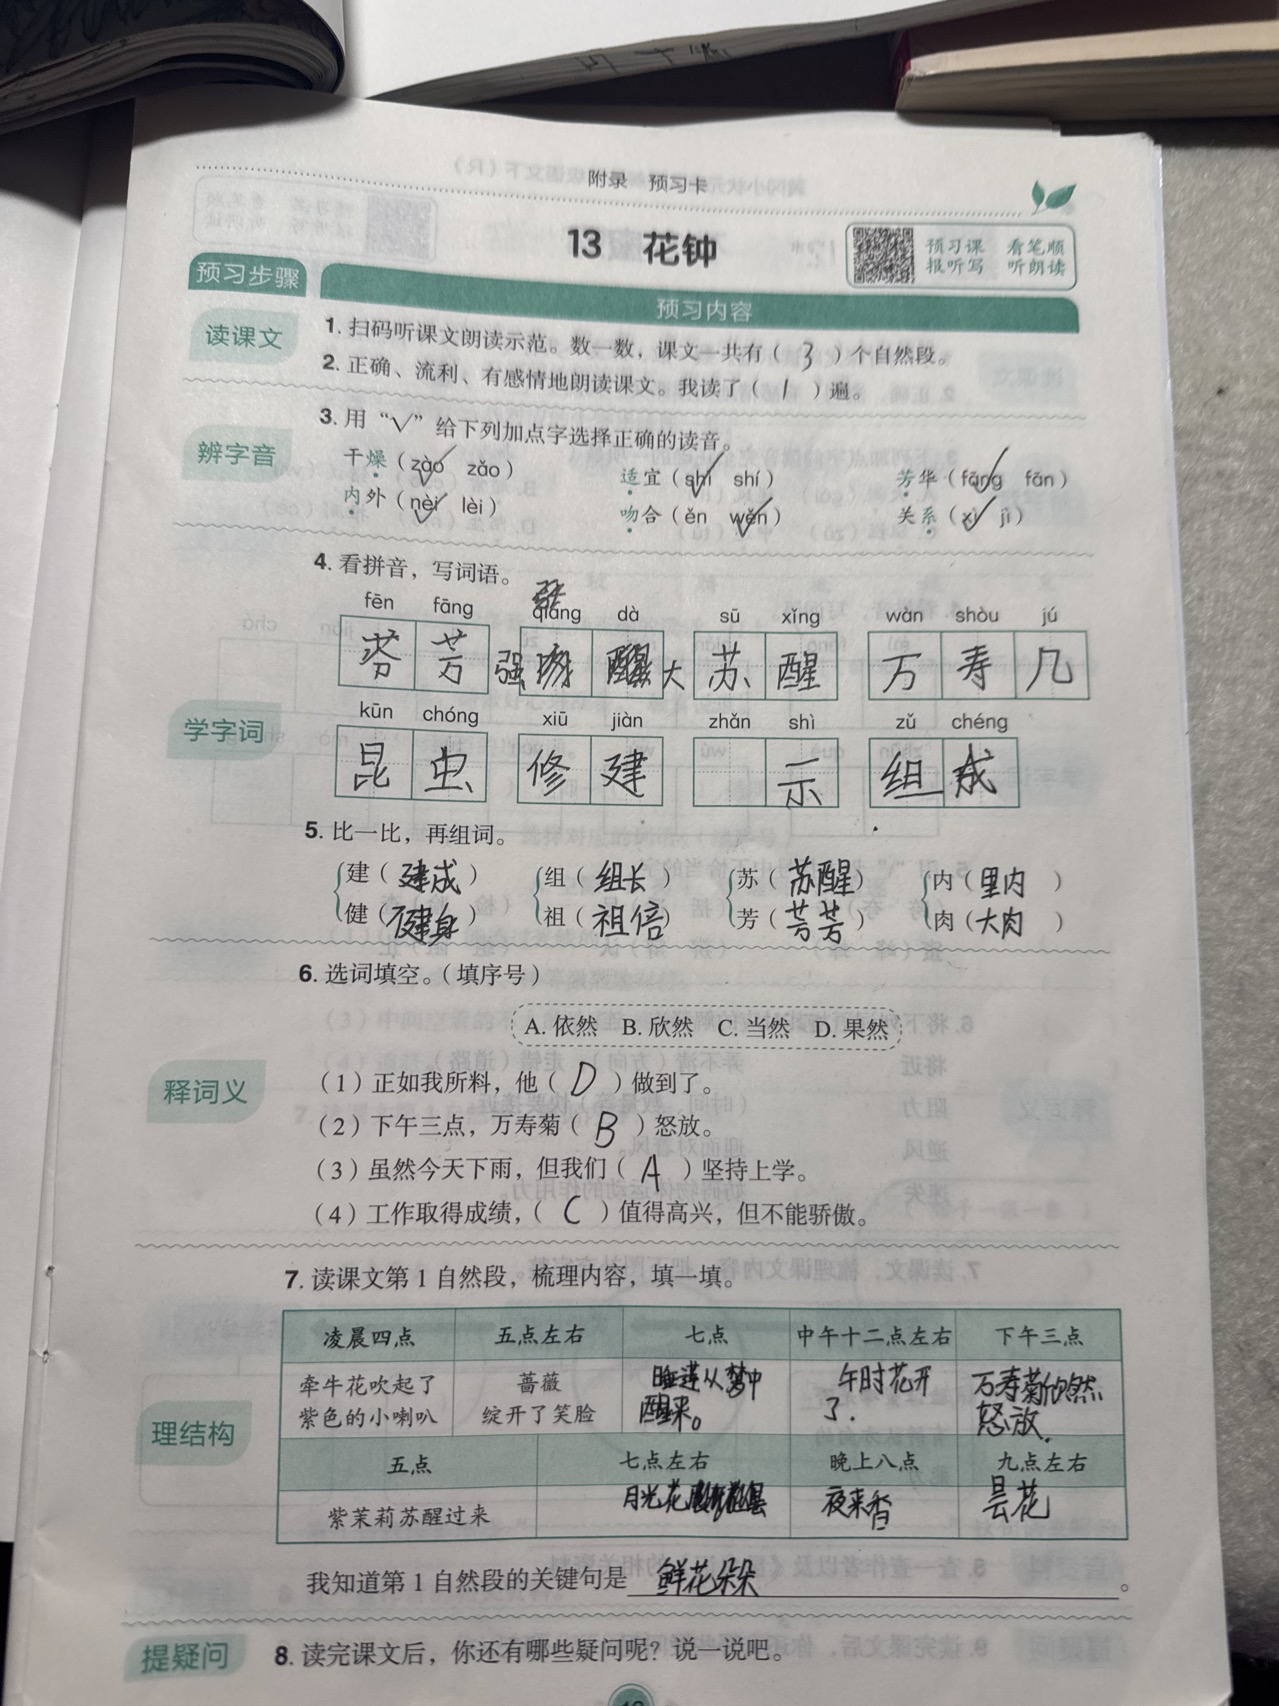 附录 预习卡
13 花钟
预习课 看笔顺
报听写 听朗读
预习步骤
预习内容
读课文
1. 扫码听课文朗读示范。数一数，课文一共有（ 3 ）个自然段。
2. 正确、流利、有感情地朗读课文。我读了（ 1 ）遍。
辨字音
3. 用“√”给下列加点字选择正确的读音。
干燥（zào√ zǎo） 适宜（shì√ shí） 芳华（fāng√ fān）
内外（nèi√ lèi） 吻合（ěn wěn√） 关系（xì√ jì）
学字词
4. 看拼音，写词语。
fēn fāng qiáng dà sū xǐng wàn shòu jú
芬 芳 强 大 苏 醒 万 寿 几
kūn chóng xiū jiàn zhǎn shì zǔ chéng
昆 虫 修 建 示 组 成
5. 比一比，再组词。
建（建成） 组（组长） 苏（苏醒） 内（里内）
健（健身） 祖（祖倍） 芳（芳芳） 肉（大肉）
释词义
6. 选词填空。（填序号）
A. 依然 B. 欣然 C. 当然 D. 果然
（1）正如我所料，他（ D ）做到了。
（2）下午三点，万寿菊（ B ）怒放。
（3）虽然今天下雨，但我们（ A ）坚持上学。
（4）工作取得成绩，（ C ）值得高兴，但不能骄傲。
理结构
7. 读课文第 1 自然段，梳理内容，填一填。
凌晨四点 五点左右 七点 中午十二点左右 下午三点
牵牛花吹起了 蔷薇 睡莲从梦中 午时花开 万寿菊欣然
紫色的小喇叭 绽开了笑脸 醒来。 了. 怒放.
五点 七点左右 晚上八点 九点左右
紫茉莉苏醒过来 月光花 夜来香 昙花
我知道第 1 自然段的关键句是 鲜花朵朵 。
提疑问
8. 读完课文后，你还有哪些疑问呢？说一说吧。